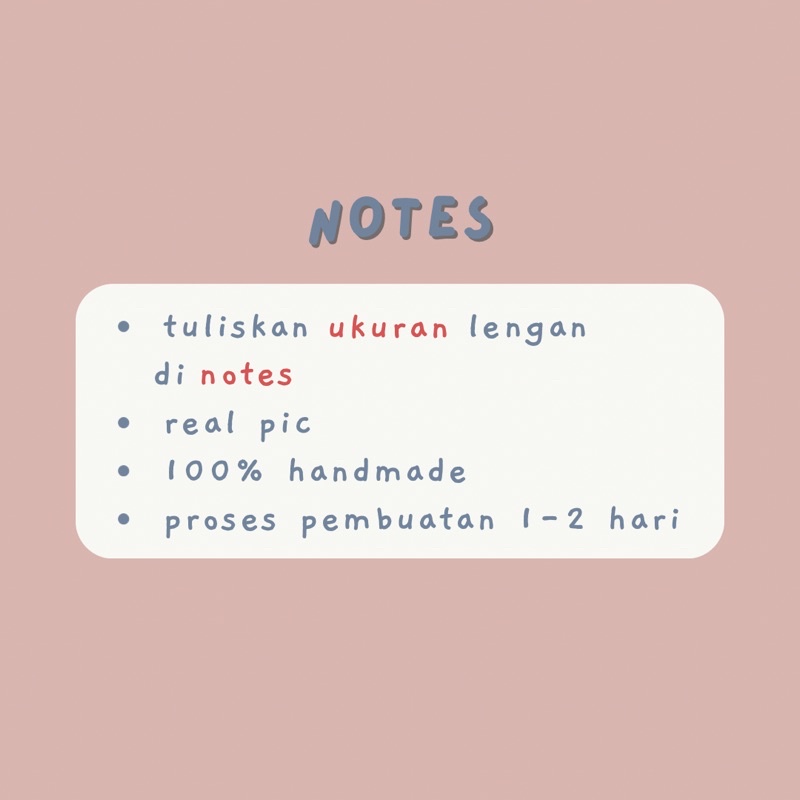 NOTES
• tuliskan ukuran lengan
di notes
• real pic
• 100% handmade
• proses pembuatan 1-2 hari